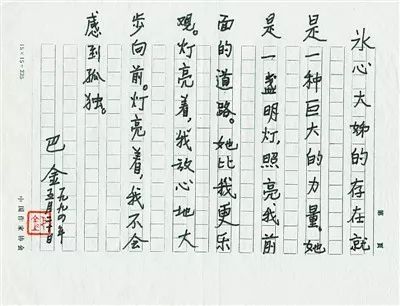 第 页
冰心大姊的存在就
是一种巨大的力量。她
是一盏明灯,照亮我前
面的道路。她比我更乐
观。灯亮着,我放心地大
步向前。灯亮着,我不会
感到孤独。
巴金
一九九四年
五月二十日
15×15=225
中国作家协会